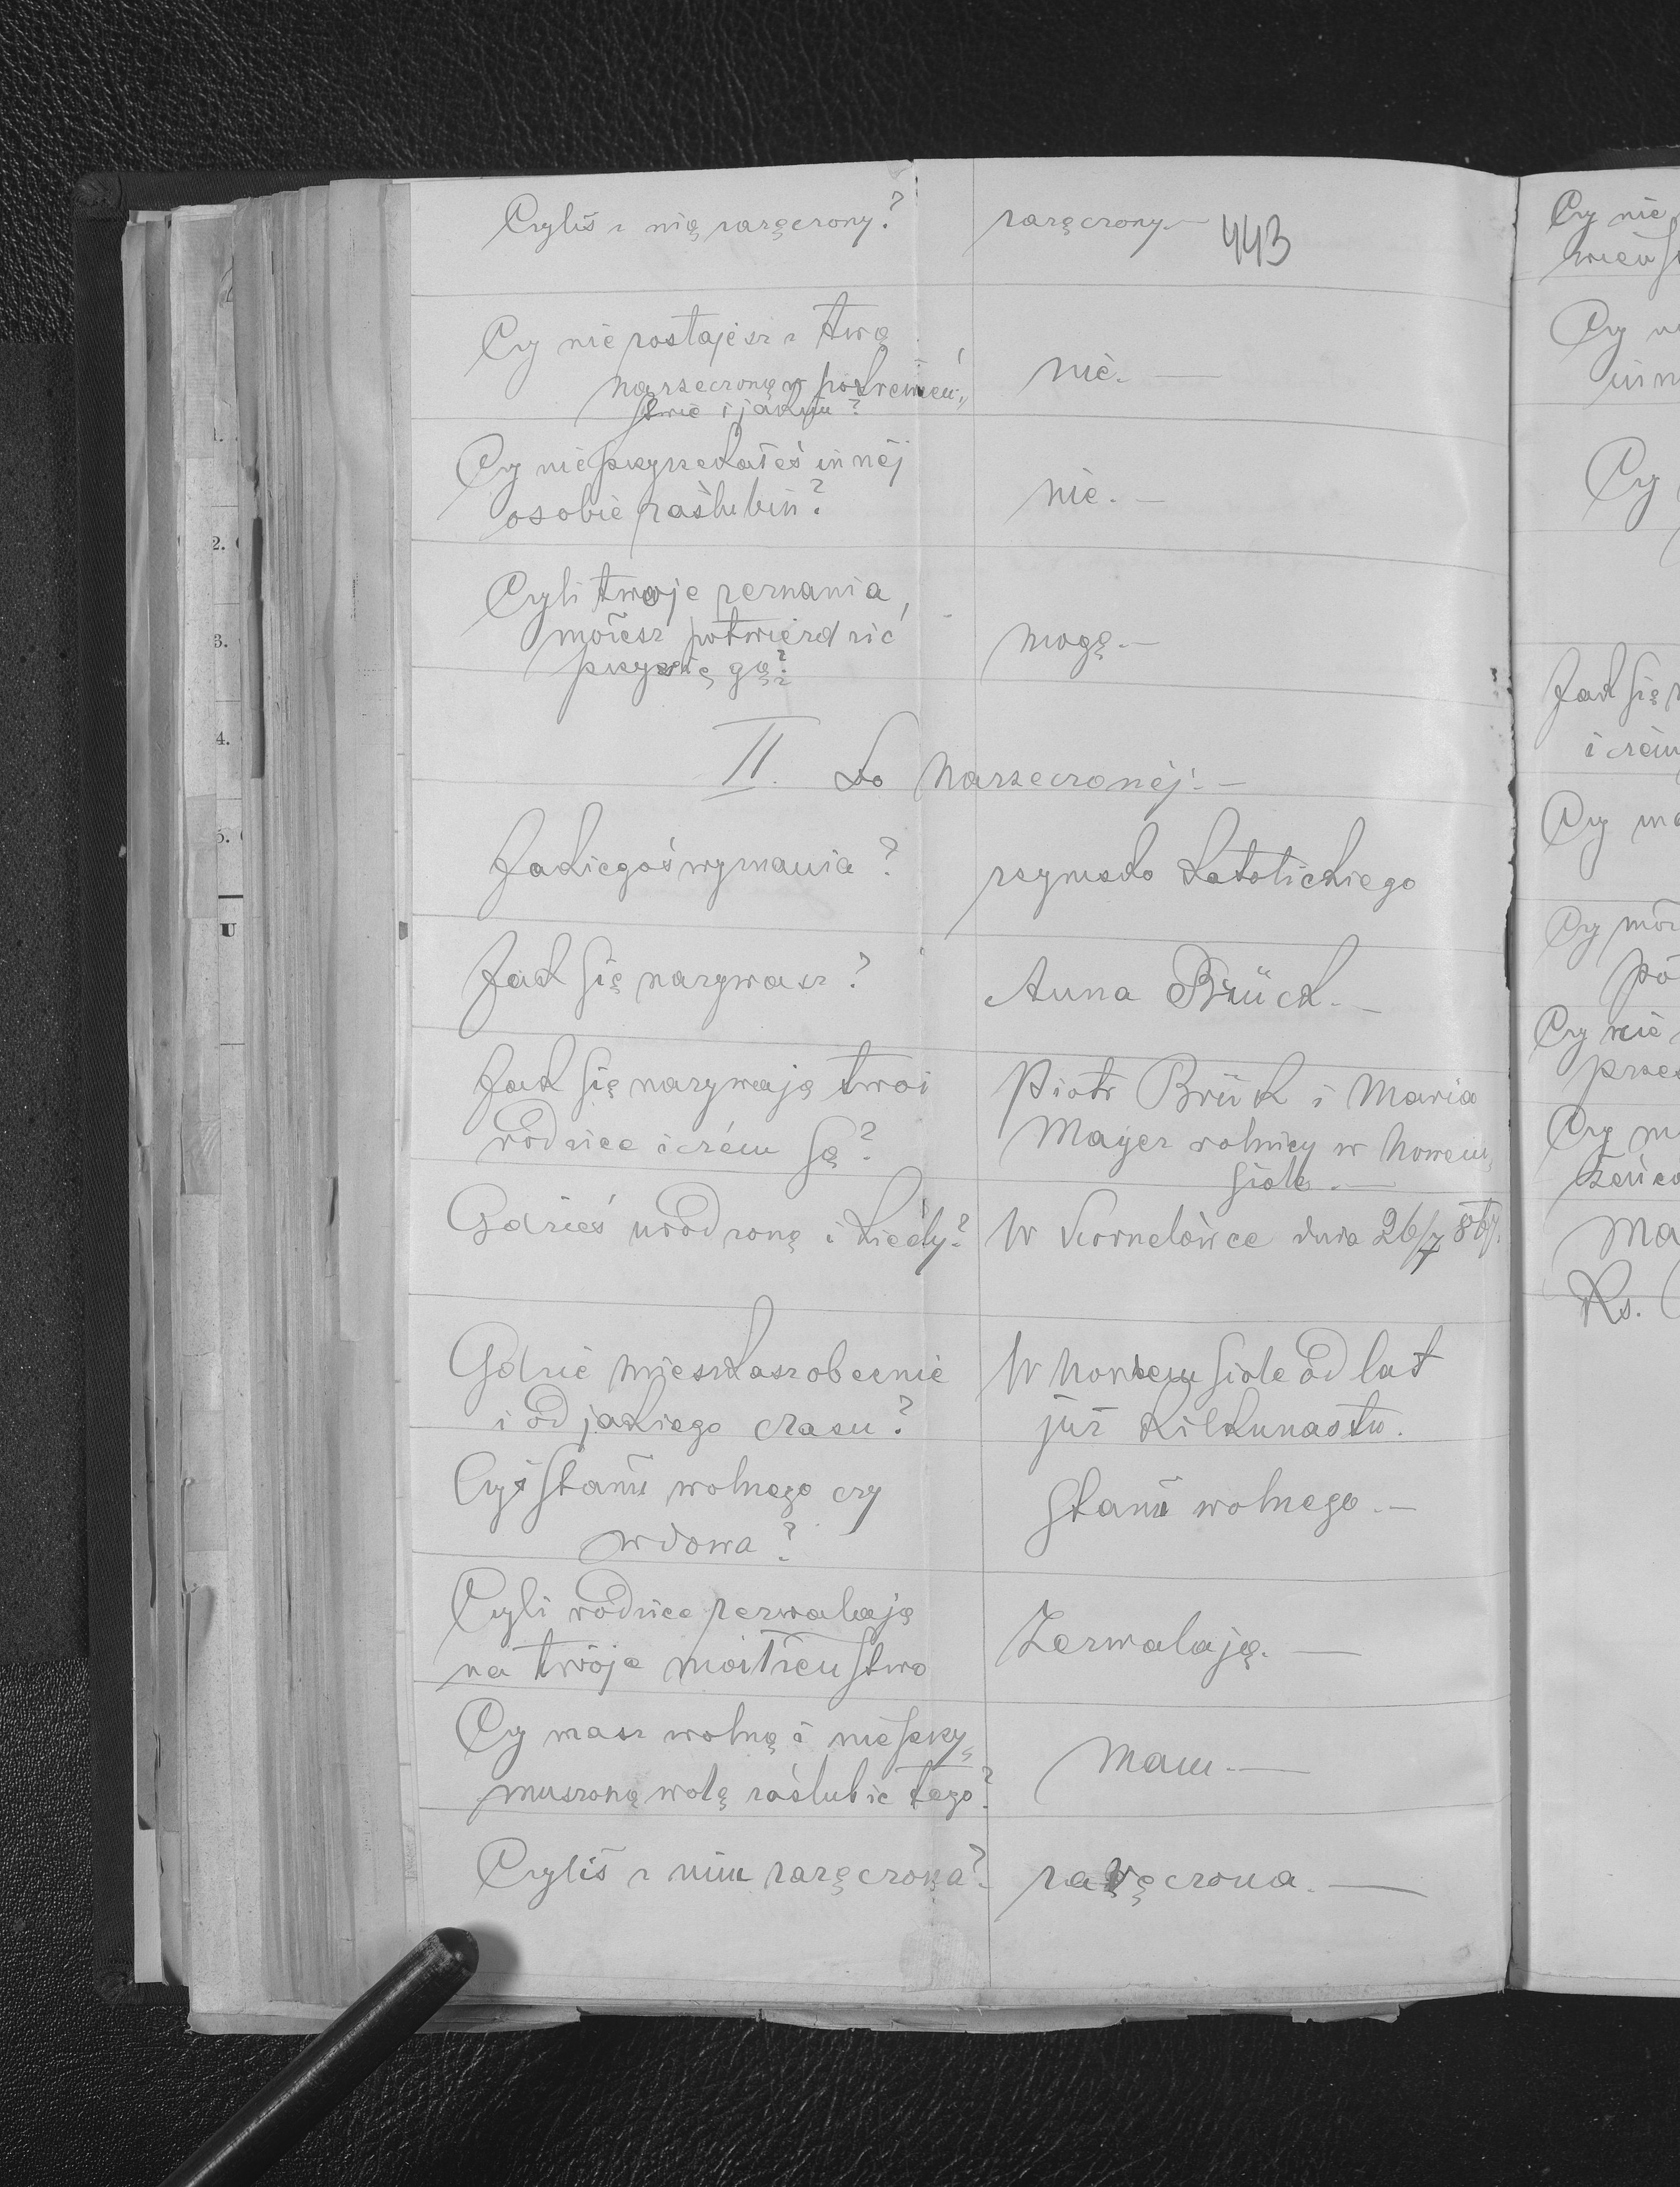 Czyliś z nią zaręczony?
zaręczony.—
443
Czy nie zostajesz z twą
narzeczoną w pokrewień„
stwie i jakim?
nie.—
Czy nie przyrzekałeś innéj
osobie zaślubin?
nie.—
Czyli twoje zeznania,
możesz potwierdzić
przysięgą?
mogę.—
II. Do Narzeczonéj.—
Jakiegoś wyznania?
rzymsko katolickiego
Jak się nazywasz?
Anna Brück.—
Jak się nazywają twoi
rodzice i czém są?
Piotr Brück i Maria
Mayer rolnicy w Nowem
siole.—
Gdzieś urodzoną i kiedy?
W Kornelówce dnia 26/7 867.
Gdzie mieszkasz obecnie
i od jakiego czasu?
W Nowem siole od lat
już kilkunastu.
Czyś stanu wolnego czy
wdowa?
Stanu wolnego.—
Czyli rodzice zezwalają
na twoje małżeństwo
Zezwalają.—
Czy masz wolną i nieprzy„
muszoną wolę zaślubić tego?
Mam.—
Czyliś z nim zaręczona?
zaręczona.—
Czy nie
Czy
Czy
Jak się
i czém
Czy
Czy
Czy nie
przes
Czy
Ma
Ks.
1.
2.
3.
4.
5.
U